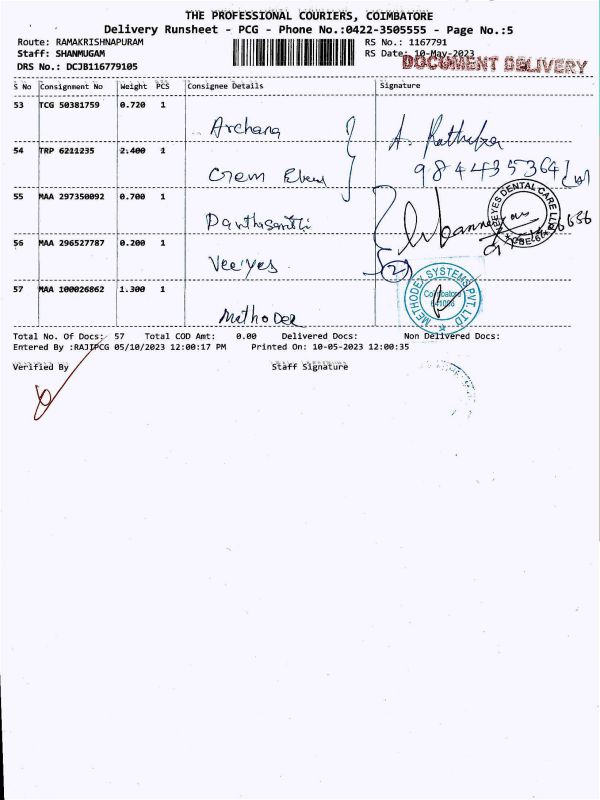 THE PROFESSIONAL COURIERS, COIMBATORE
Delivery Runsheet - PCG - Phone No.:0422-3505555 - Page No.:5
Route: RAMAKRISHNAPURAM
RS No.: 1167791
Staff: SHANMUGAM
RS Date: 10-May-2023
DRS No.: DCJB116779105
DOCUMENT DELIVERY
S No Consignment No Weight PCS Consignee Details Signature
53 TCG 50381759 0.720 1
Archana
54 TRP 6211235 2.400 1
Gem
55 MAA 297350092 0.700 1
56 MAA 296527787 0.200 1
Veeyes
(2)
57 MAA 100026862 1.300 1
Methodex
DENTAL CARE
METHODEX SYSTEMS PVT. LTD
Coimbatore
Total No. Of Docs: 57 Total COD Amt: 0.00 Delivered Docs: Non Delivered Docs:
Entered By :RAJIPCG 05/10/2023 12:00:17 PM Printed On: 10-05-2023 12:00:35
Verified By Staff Signature